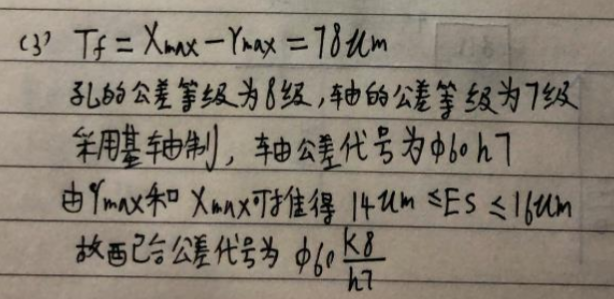 (3) Tf = Xmax − Ymax = 78um
孔的公差等级为8级,轴的公差等级为7级
采用基轴制,轴公差代号为φ60h7
由Ymax和Xmax可推得 14um ≤ES ≤16um
故配合公差代号为 φ60 K8/h7